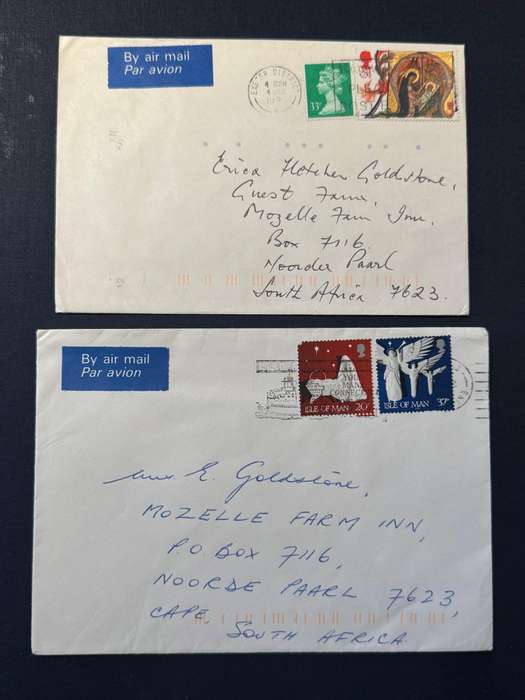 By air mail
Par avion
EXETER DISTRICT
33P
Erica Fletcher Goldstone,
Guest Farm,
Mozelle Farm Inn.
Box 7116.
Noorder Paarl
South Africa 7623.
By air mail
Par avion
YOUR
MANX
CONNECTION
ISLE OF MAN 20P
ISLE OF MAN 37P
Mrs E. Goldstone,
MOZELLE FARM INN,
P.O. BOX 7116,
NOORDE PAARL 7623,
CAPE
SOUTH AFRICA